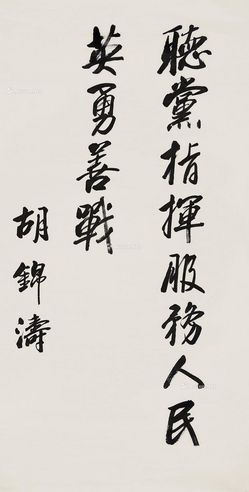 聽黨指揮服務人民
英勇善戰
胡錦濤